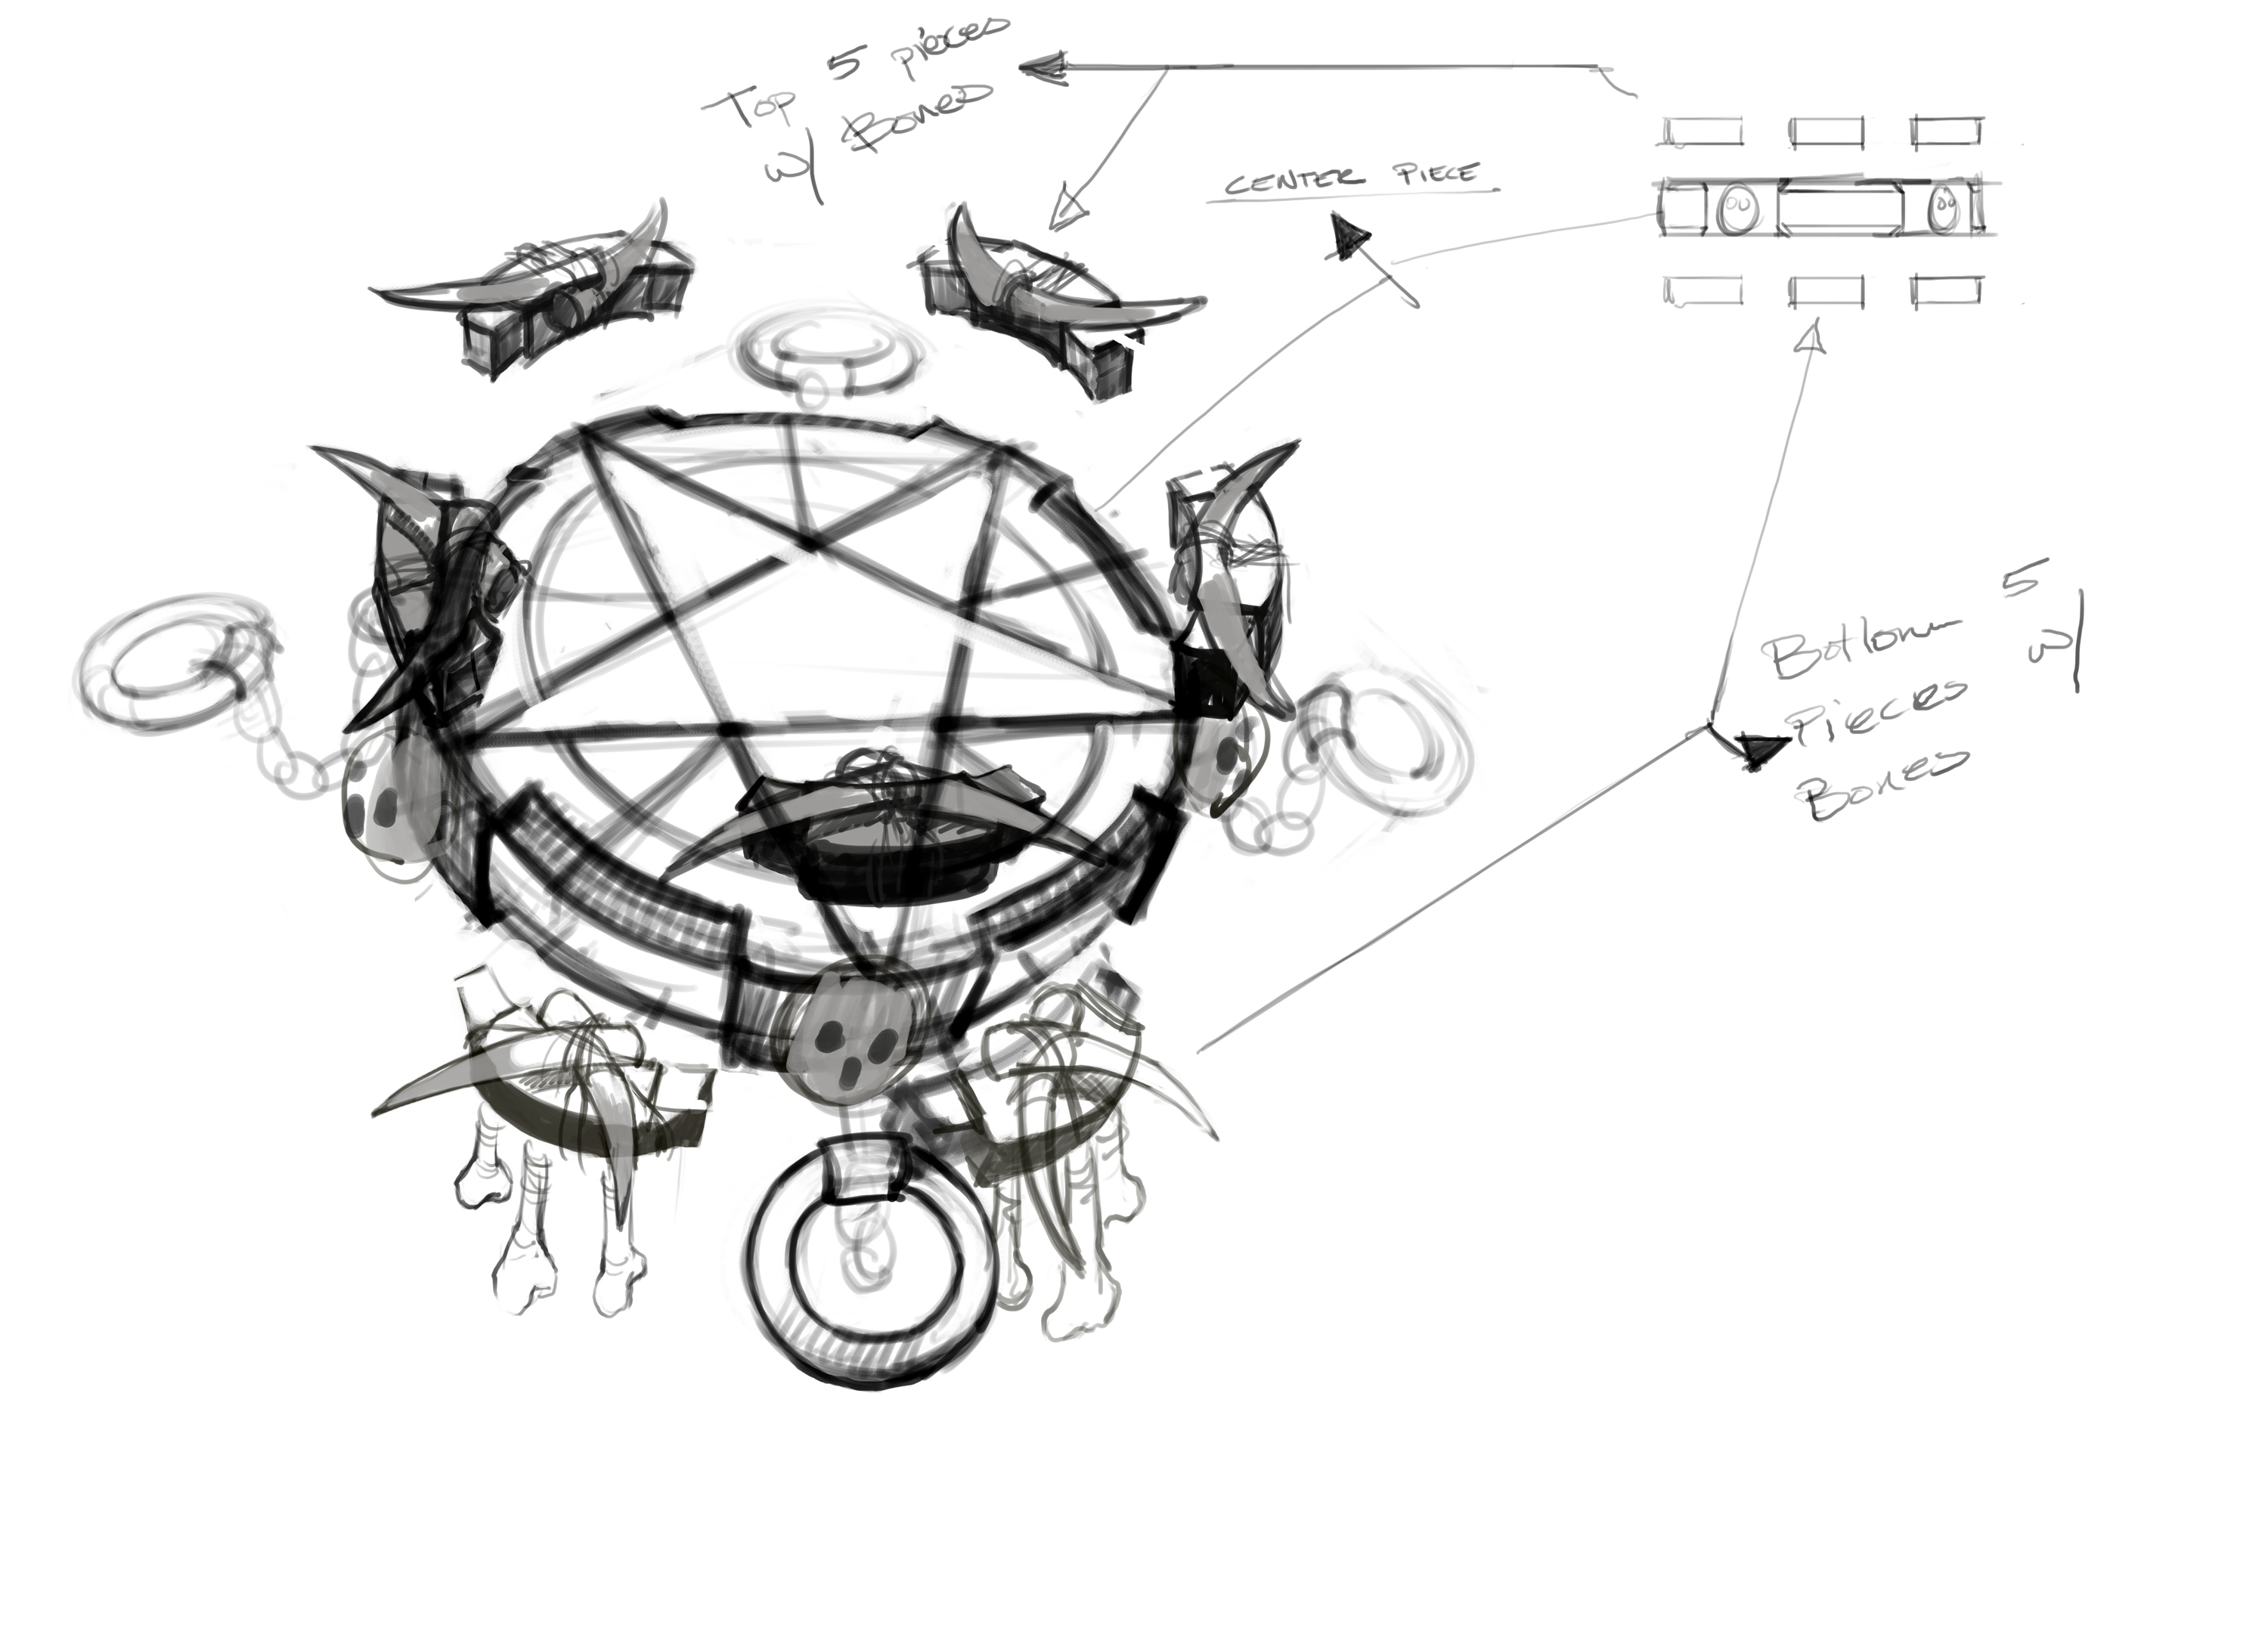 Top 5 pieces
w/ Bones
CENTER PIECE
Bottom 5
Pieces w/
Bones